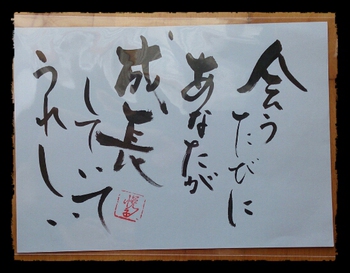 会う
たびに
あなたが
成長
していて
うれしい